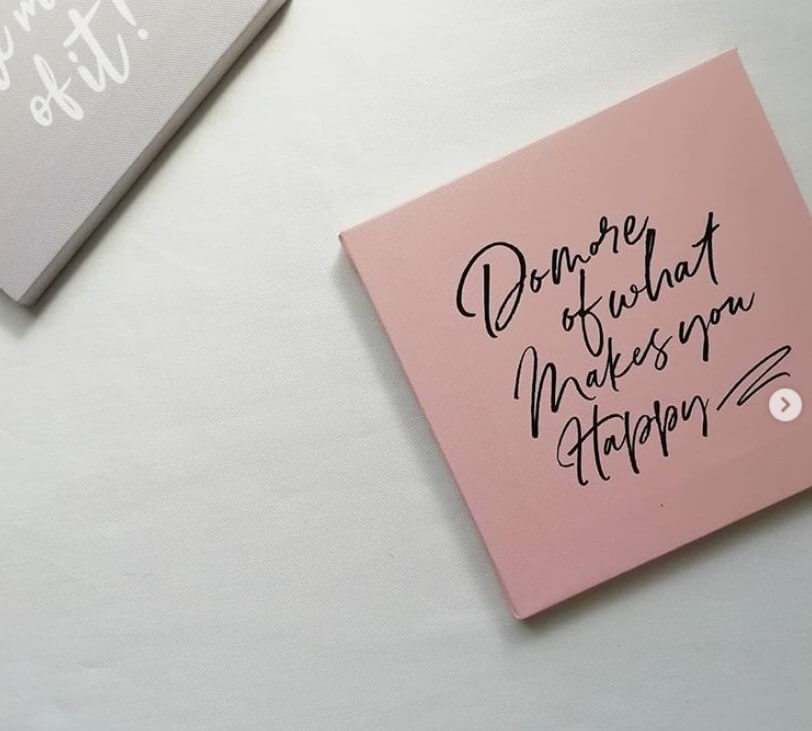 of it!
Do more
of what
Makes you
Happy